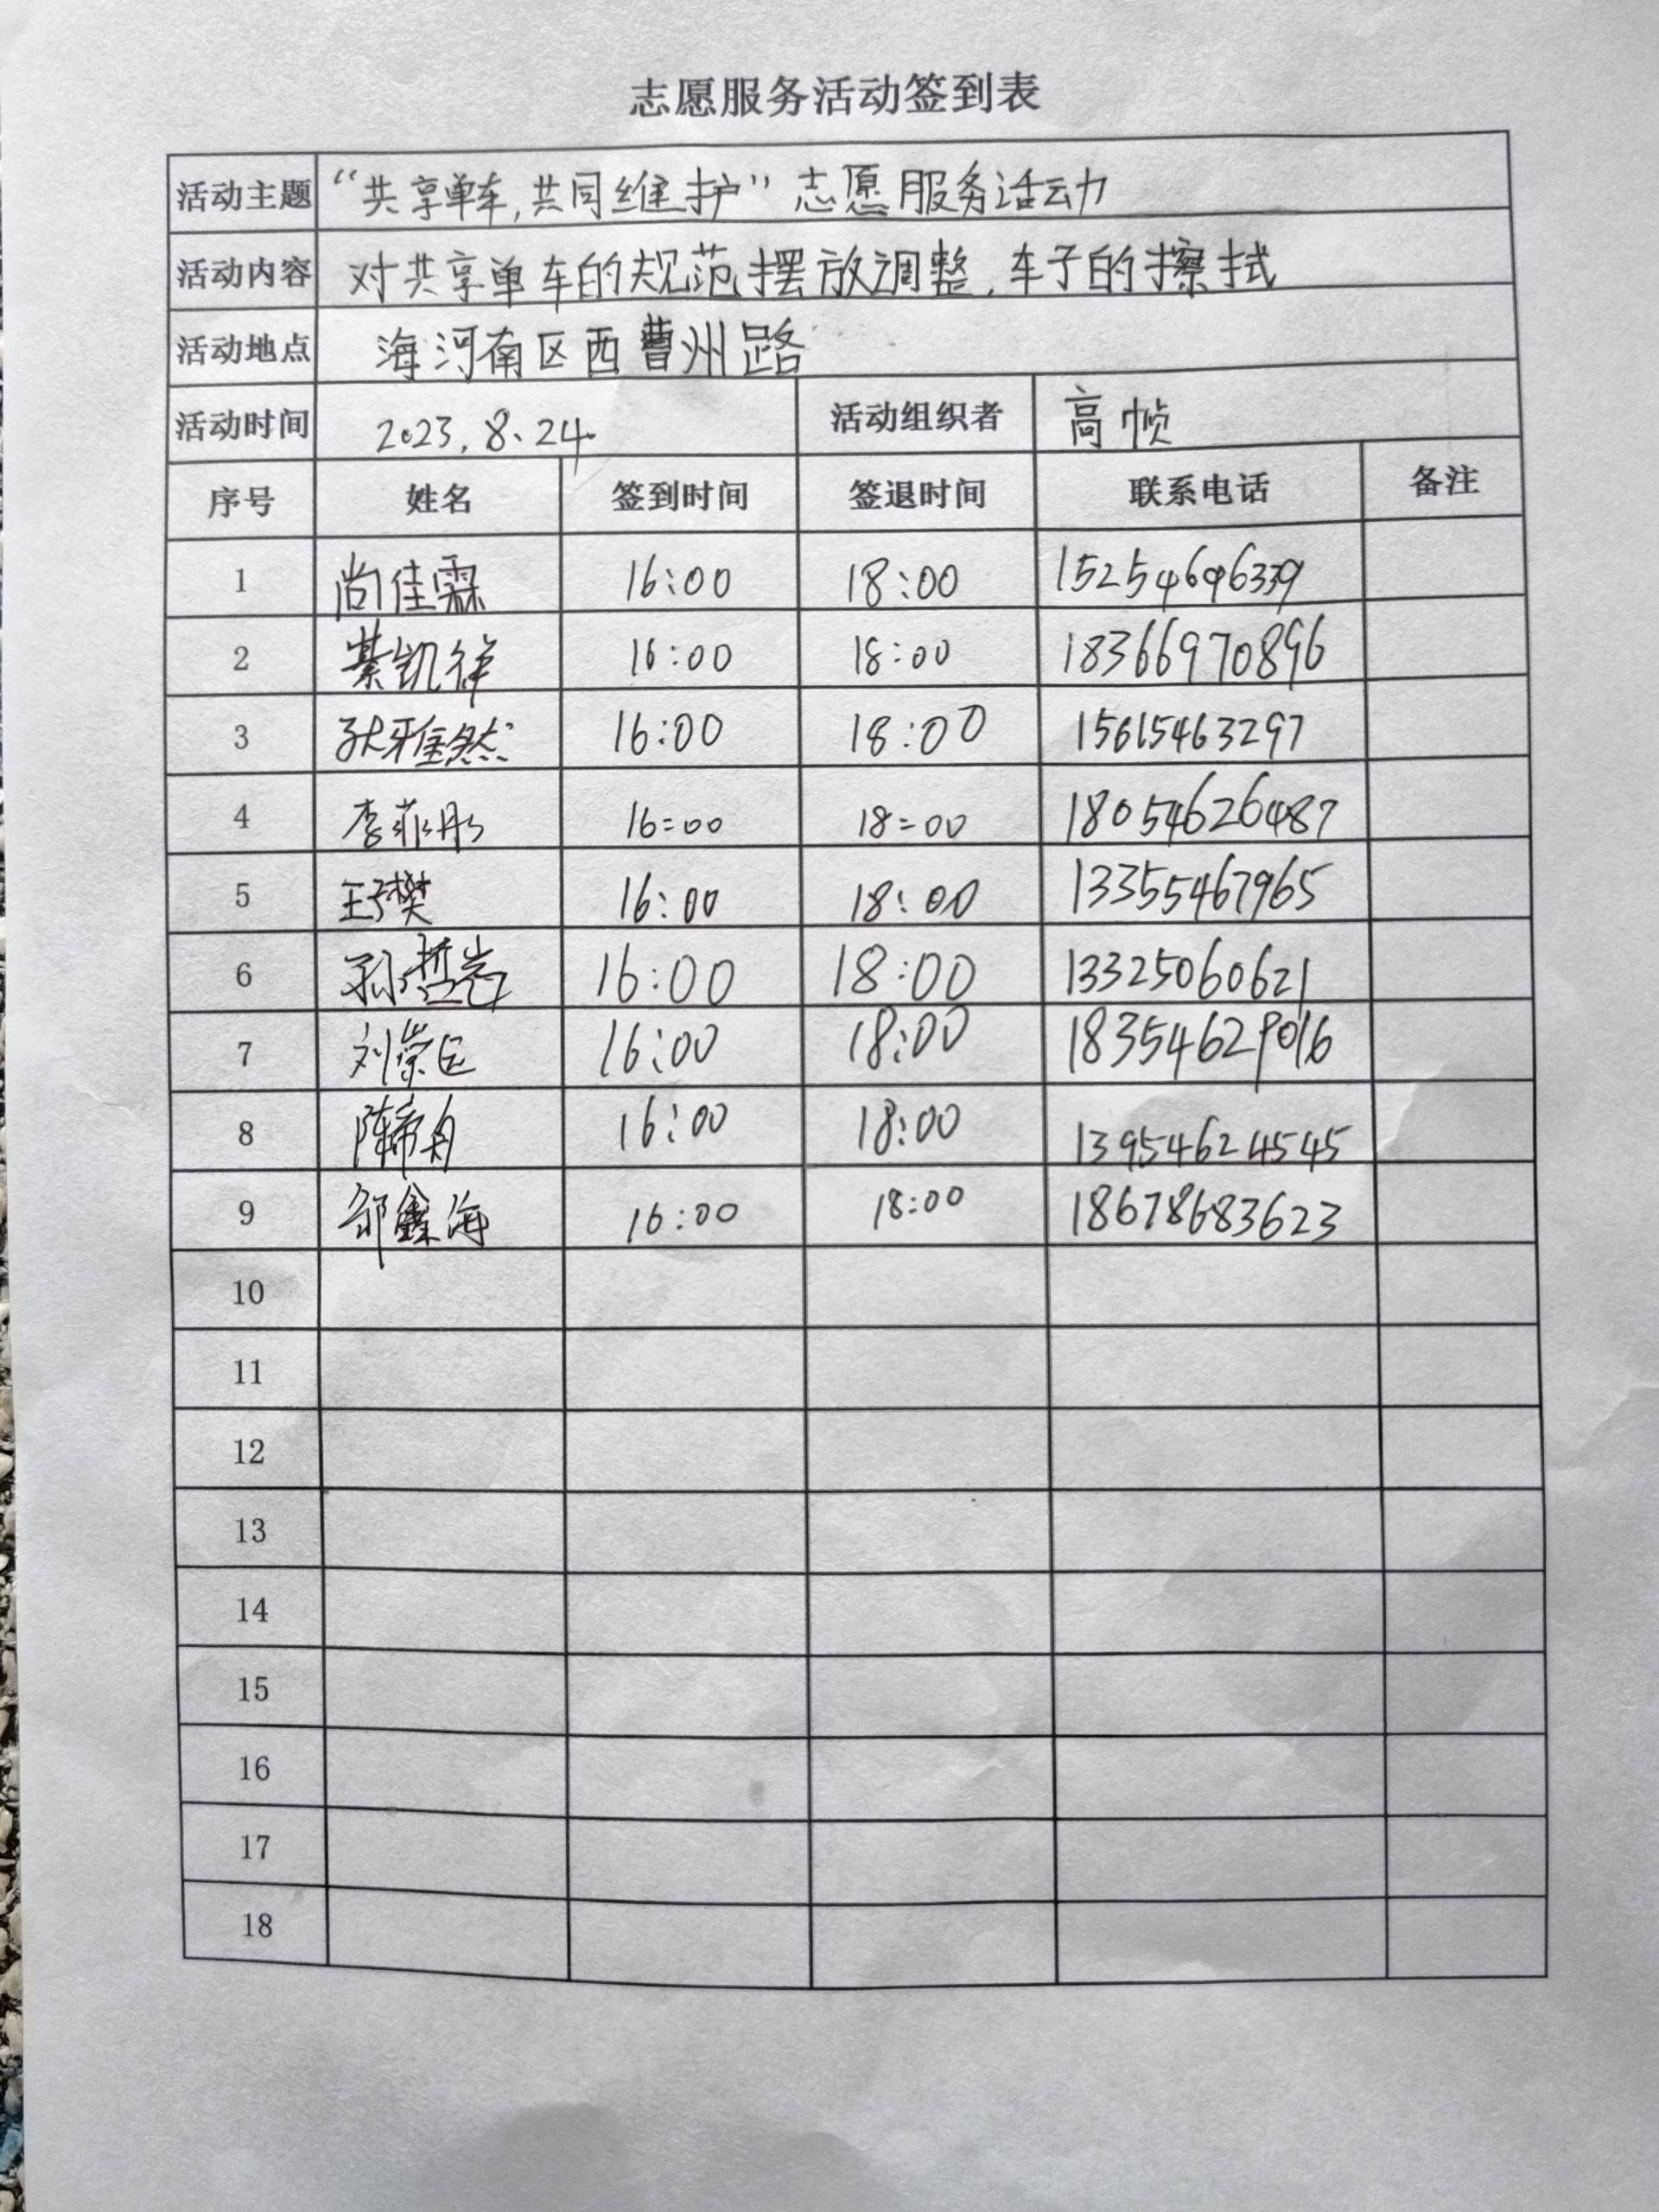 志愿服务活动签到表
活动主题 “共享单车,共同维护”志愿服务活动
活动内容 对共享单车的规范摆放调整,车子的擦拭
活动地点 海河南区西曹州路
活动时间 2023.8.24. 活动组织者 高帧
序号 姓名 签到时间 签退时间 联系电话 备注
1 尚佳霖 16:00 18:00 15254696339
2 綦凯祥 16:00 18:00 18366970896
3 16:00 18:00 15615463297
4 李菲彤 16:00 18:00 18054626487
5 王子樊 16:00 18:00 13355467965
6 16:00 18:00 13325060621
7 16:00 18:00 18354629016
8 陈帝舟 16:00 18:00 13954624545
9 邹鑫海 16:00 18:00 18678683623
10
11
12
13
14
15
16
17
18